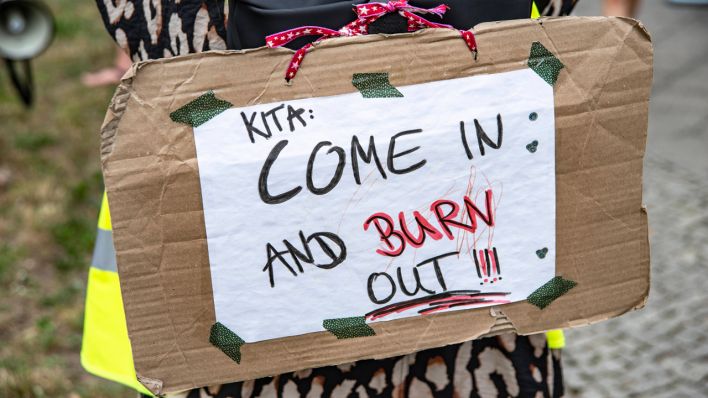 KITA:
COME IN
AND BURN
OUT!!!